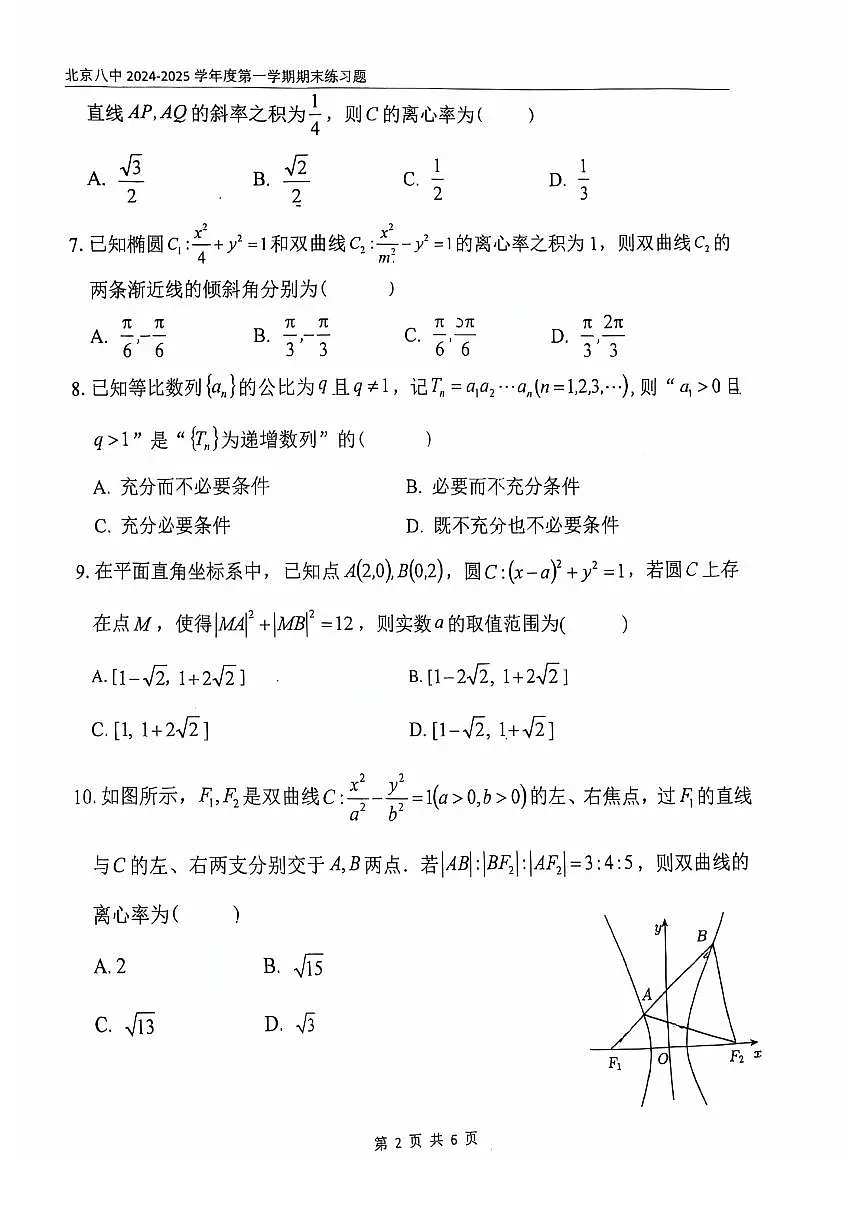 北京八中 2024-2025 学年度第一学期期末练习题
直线 AP, AQ 的斜率之积为 1/4，则 C 的离心率为( )
A. √3/2 B. √2/2 C. 1/2 D. 1/3
7. 已知椭圆 C₁: x²/4 + y² = 1 和双曲线 C₂: x²/m² − y² = 1 的离心率之积为 1，则双曲线 C₂ 的
两条渐近线的倾斜角分别为( )
A. π/6, −π/6 B. π/3, −π/3 C. π/6, 5π/6 D. π/3, 2π/3
8. 已知等比数列 {aₙ} 的公比为 q 且 q ≠ 1，记 Tₙ = a₁a₂⋯aₙ(n = 1,2,3,⋯), 则 “ a₁ > 0 且
q > 1” 是 “ {Tₙ} 为递增数列” 的( )
A. 充分而不必要条件 B. 必要而不充分条件
C. 充分必要条件 D. 既不充分也不必要条件
9. 在平面直角坐标系中，已知点 A(2,0), B(0,2)，圆 C: (x − a)² + y² = 1，若圆 C 上存
在点 M，使得 |MA|² + |MB|² = 12，则实数 a 的取值范围为( )
A. [1−√2, 1+2√2] B. [1−2√2, 1+2√2]
C. [1, 1+2√2] D. [1−√2, 1+√2]
10. 如图所示，F₁, F₂ 是双曲线 C: x²/a² − y²/b² = 1(a > 0, b > 0) 的左、右焦点，过 F₁ 的直线
与 C 的左、右两支分别交于 A, B 两点．若 |AB|:|BF₂|:|AF₂| = 3:4:5，则双曲线的
离心率为( )
A. 2 B. √15
C. √13 D. √3
y
B
A
F₁ O F₂ x
第 2 页 共 6 页